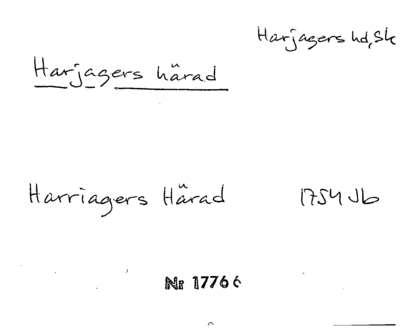 Harjagers hd, Sk
Harjagers härad
Harriagers Härad 1754 Jb
Nr 17766